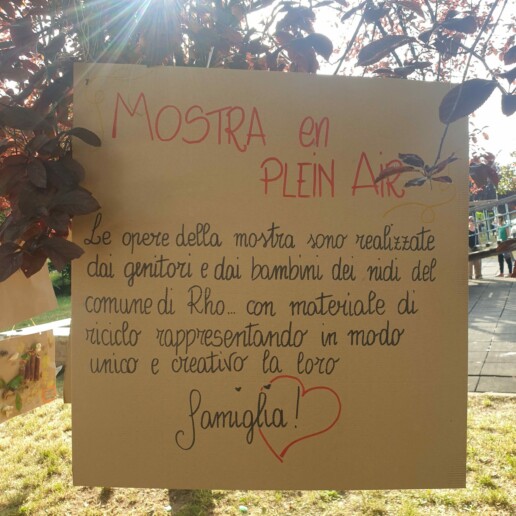 MOSTRA en
PLEIN AIR
Le opere della mostra sono realizzate
dai genitori e dai bambini dei nidi del
comune di Rho... con materiale di
riciclo rappresentando in modo
unico e creativo la loro
famiglia!